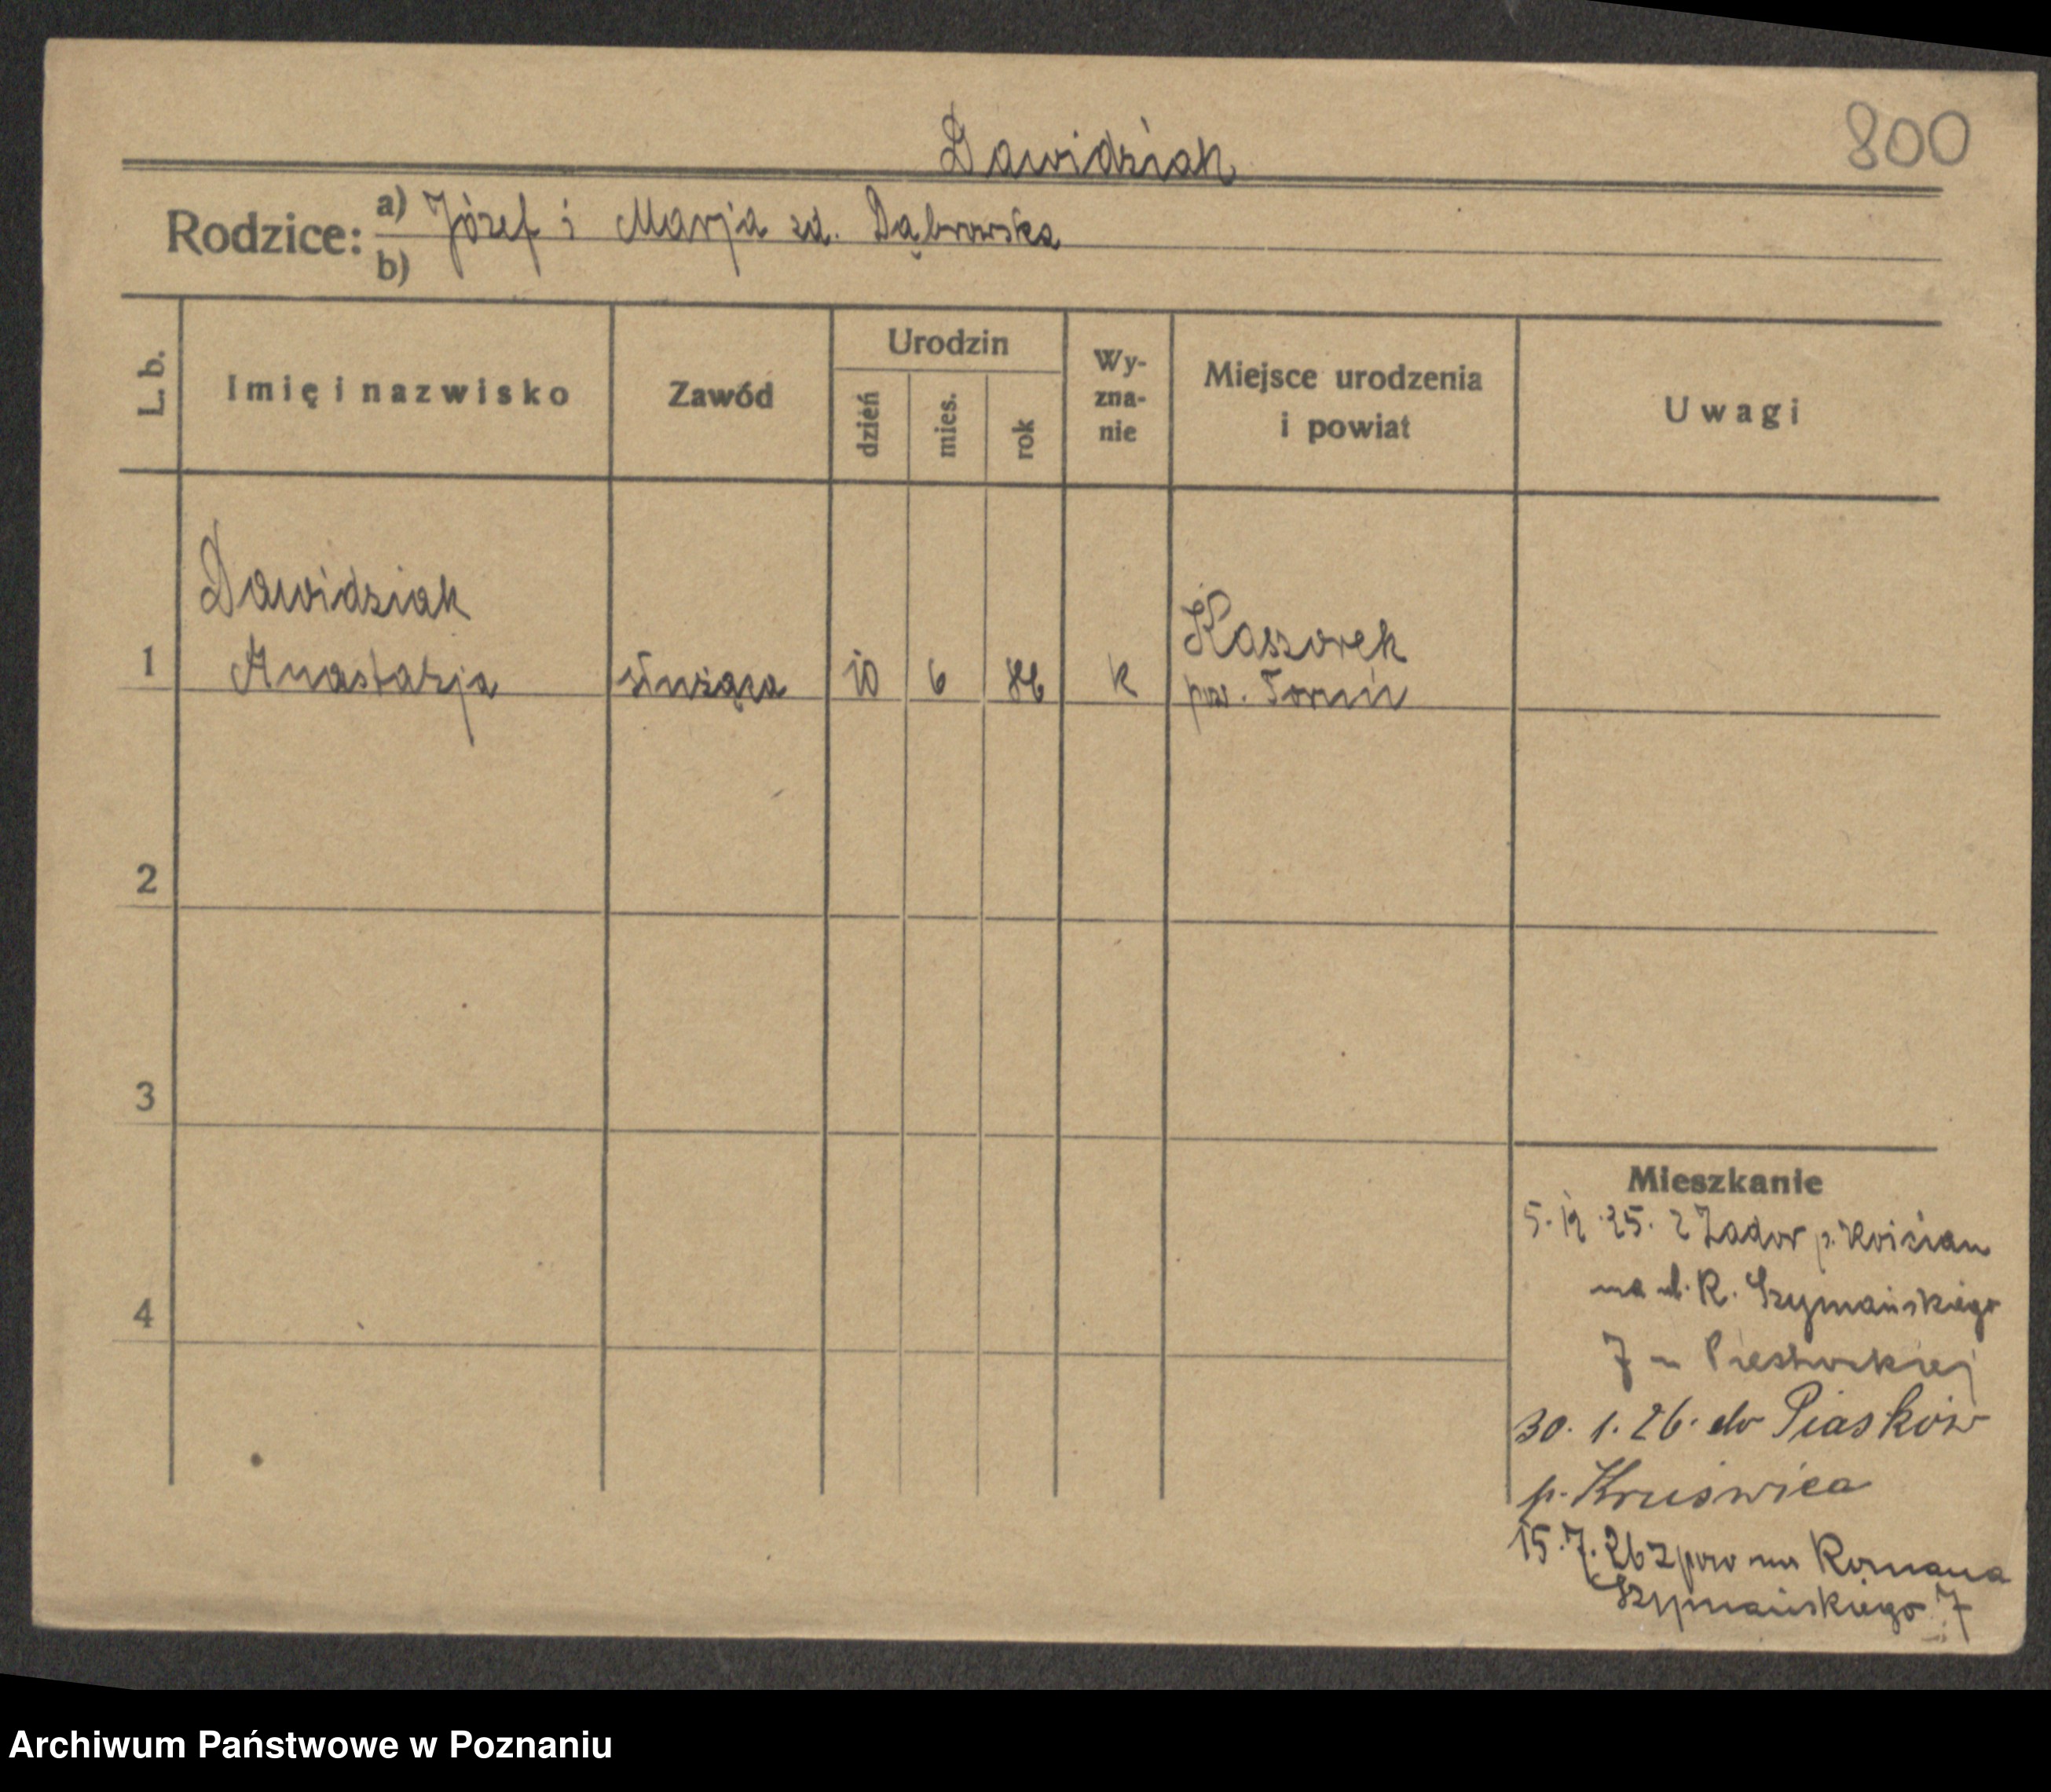 Dawidziak
800
Rodzice: a) Józef i Marja zd. Dąbrowska
b)
L. b.
Imię i nazwisko
Zawód
Urodzin
dzień
mies.
rok
Wy-
zna-
nie
Miejsce urodzenia
i powiat
Uwagi
Dawidziak
1 Anastazja służąca 10 6 K
Kaszorek
pow. Toruń
2
3
4
Mieszkanie
5. 12. 25. z p. Kościan
na ul. R. Szymańskiego
7
30. 1. 26. do Piasków
p. Kruświca
15. 7. 26 z pow na Romana
Szymańskiego 7
Archiwum Państwowe w Poznaniu